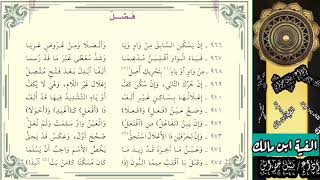 فصل
٩٦٦ . إن يسكن السابق من واو ويا واتصلا ومن عروض عريا
٩٦٧ . فياء الواو اقلبن مدغما وشذ معطى غير ما قد رسما
٩٦٨ . من واو أو ياء بتحريك أصل ألفا ابدل بعد فتح متصل
٩٦٩ . إن حرك التالي، وإن سكن كف إعلال غير اللام، وهي لا يكف
٩٧٠ . إعلالها بساكن غير ألف أو ياء التشديد فيها قد ألف
٩٧١ . وصح عين (فعل) و(فعلا) ذا (أفعل) كـ(أغيد) و(أحولا)
٩٧٢ . وإن يبن (تفاعل) من (افتعل) والعين واو سلمت ولم تعل
٩٧٣ . وإن لحرفين ذا الإعلال استحق صحح أول، وعكس قد يحق
٩٧٤ . وعين ما آخره قد زيد ما يخص الاسم واجب أن يسلما
٩٧٥ . وقبل با اقلب ميما النون إذا كان مسكنا كـ(من بت انبذا)
ألفية ابن مالك